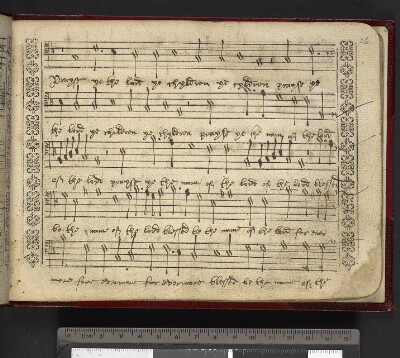 Prayse ye the lord ye chyldren ye chyldren prayse ye
the lord ye chyldren ye chyldren prayse ye the name of the lord
of the lorde prayse ye the name of the lorde of the lord blessed
be the name of the lord blessed be the name of the lord for ever
more for evermore for evermore blessed be the name of the